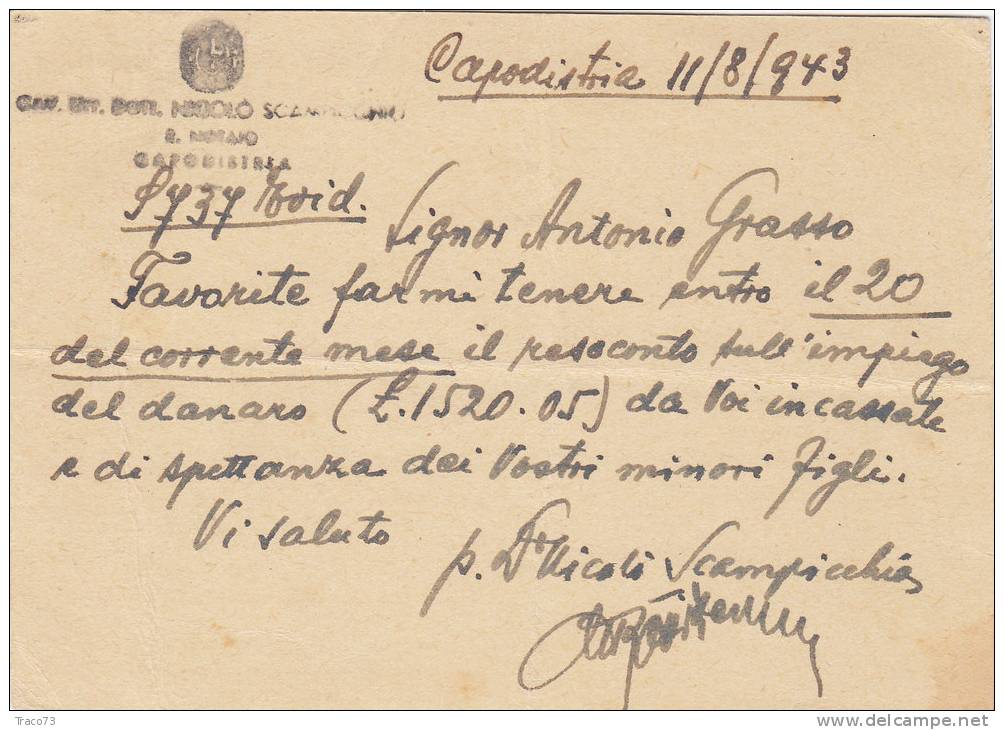 Capodistria 11/8/943
CAV. UFF. DOTT. NICCOLÒ SCAMPICCHIO
R. NOTAIO
CAPODISTRIA
Signor Antonio Grasso
Favorite farmi tenere entro il 20
del corrente mese il resoconto sull'impiego
del danaro (£.1520.05) da Voi incassate
e di spettanza dei Vostri minori figli.
Vi saluto
p. Dr Nicolò Scampicchio
Traco73
www.delcampe.net